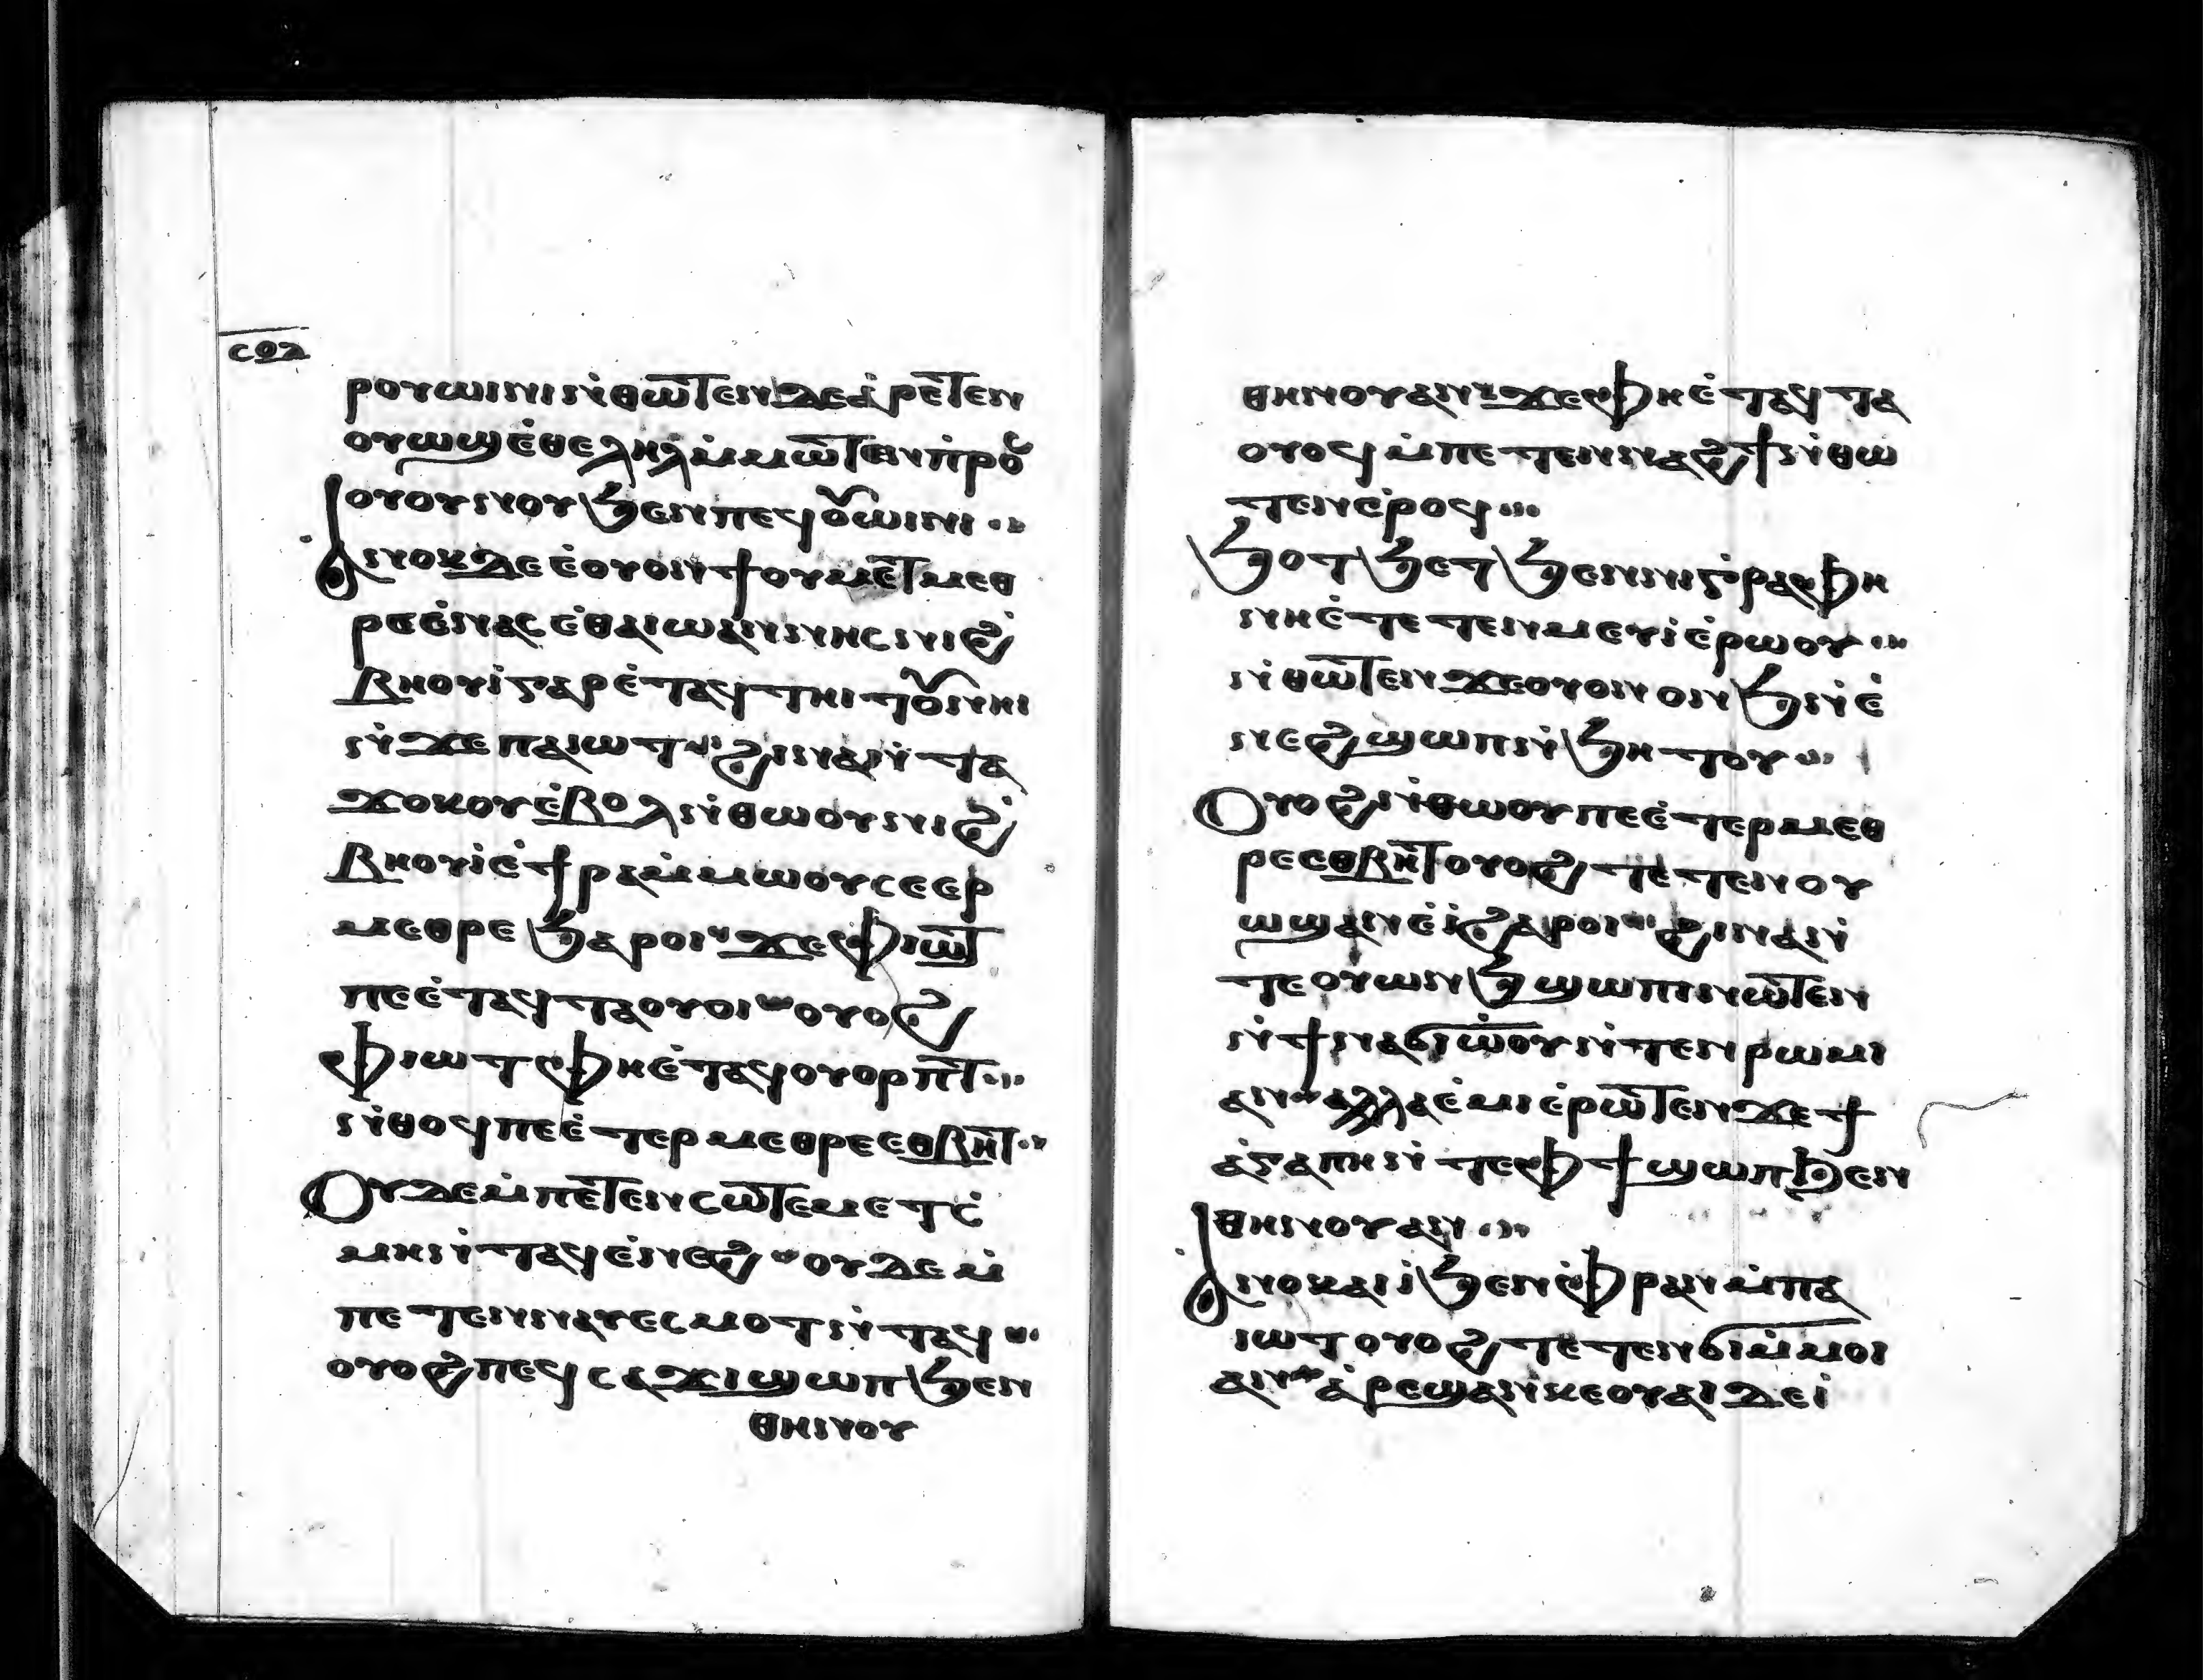 ⲥⲟⲁ
ⲣⲟⲩⲱⲓⲛⲓ ⲛ̇ⲑⲱⲧⲉⲛ ⲇⲉ ⲁ̇ⲣⲉⲧⲉⲛ
ⲟⲩⲱϣ ⲉ̇ⲑⲉⲗⲏⲗ ⲙ̇ⲙⲱⲧⲉⲛ ⲡ̇ⲣⲟⲥ
ⲟⲩⲟⲩⲛⲟⲩ ϧⲉⲛ ⲡⲉϥⲟⲩⲱⲓⲛⲓ
Ⲁⲛⲟⲕ ⲇⲉ ⲉ̇ⲟⲩⲟⲛϯ ⲟⲩⲙⲉⲧⲙⲉⲑ
ⲣⲉ ⲉ̇ⲛⲁⲥ ⲉ̇ⲑⲁ ⲓⲱⲁⲛⲛⲏⲥ ⲛⲓϩ̇
ⲃⲏⲟⲩⲓ̇ ⲅⲁⲣ ⲉ̇ⲧⲁϥⲧⲏⲓⲧⲟⲩ ⲛⲏⲓ
ⲛ̇ϫⲉ ⲡⲁⲓⲱⲧ ϩⲓⲛⲁ ⲛ̇ⲧⲁ
ϫⲟⲕⲟⲩ ⲉ̇ⲃⲟⲗ ⲛ̇ⲑⲱⲟⲩ ⲛⲓϩ̇
ⲃⲏⲟⲩⲓ̇ ⲉ̇ϯⲣⲁ ⲙ̇ⲙⲱⲟⲩ ⲥⲉⲉⲣ
ⲙⲉⲑⲣⲉ ϧⲁⲣⲟⲓ ϫⲉ ⲫⲓⲱⲧ
ⲡⲉ ⲉ̇ⲧⲁϥⲧⲁⲟⲩⲟⲓ ⲟⲩⲟϩ
ⲫⲓⲱⲧ ⲫⲏ ⲉ̇ⲧⲁϥⲟⲩⲟⲣⲡⲧ
ⲛ̇ⲑⲟϥ ⲡⲉ ⲉ̇ⲧⲉⲣⲙⲉⲑⲣⲉ ⲉⲑⲃⲏⲧ
Ⲟⲩⲇⲉ ⲙ̇ⲡⲉⲧⲉⲛⲥⲱⲧⲉⲙ ⲉⲧⲥ̇
ⲙⲏ ⲛ̇ⲧⲁϥ ⲉ̇ⲛⲉϩ ⲟⲩⲇⲉ ⲙ̇
ⲡⲉⲧⲉⲛⲛⲁⲩ ⲉⲥⲙⲟⲧ ⲛ̇ⲧⲁϥ
ⲟⲩⲟϩ ⲡⲉϥⲥⲁϫⲓ ϣⲱⲡ ϧⲉⲛ
ⲑⲏⲛⲟⲩ
ⲑⲏⲛⲟⲩ ⲁⲛ ϫⲉ ⲫⲏ ⲉ̇ⲧⲁϥⲧⲁ
ⲟⲩⲟϥ ⲙ̇ⲡⲉⲧⲉⲛⲛⲁϩϯ ⲛ̇ⲑⲱ
ⲧⲉⲛ ⲉ̇ⲣⲟϥ
Ϧⲟⲧϧⲉⲧ ϧⲉⲛ ⲛⲓⲅ̇ⲣⲁⲫⲏ
ⲛⲏ ⲉ̇ⲧⲉⲧⲉⲛⲙⲉⲩⲓ̇ ⲉ̇ⲣⲱⲟⲩ
ⲛ̇ⲑⲱⲧⲉⲛ ϫⲉ ⲟⲩⲟⲛ ⲟⲛϧ ⲛ̇ⲉ̇
ⲛⲉϩ ϣⲱⲡ ⲛ̇ϧⲏⲧⲟⲩ
Ⲟⲩⲟϩ ⲛ̇ⲑⲱⲟⲩ ⲡⲉ ⲉ̇ⲧⲉⲣⲙⲉⲑ
ⲣⲉ ⲉⲑⲃⲏⲧ ⲟⲩⲟϩ ⲧⲉⲧⲉⲛⲟⲩ
ⲱϣ ⲁⲛ ⲉ̇ⲓ̇ ϩⲁⲣⲟⲓ ϩⲓⲛⲁ ⲛ̇
ⲧⲉ ⲟⲩⲱⲛϧ ϣⲱⲡⲓ ⲛⲱⲧⲉⲛ
ⲛ̇ϯⲛⲁϭⲓⲱ̇ⲟⲩ ⲛ̇ⲧⲉⲛ ⲣⲱⲙⲓ
ⲁⲛ ⲁⲗⲗⲁ ⲉ̇ⲙⲓ ⲉ̇ⲣⲱⲧⲉⲛ ϫⲉ ϯ
ⲁ̇ⲅⲁⲡⲏ ⲛ̇ⲧⲉ ⲫϯ ϣⲱⲡ ϧⲉⲛ
ⲑⲏⲛⲟⲩ ⲁⲛ
Ⲁⲛⲟⲕ ⲁⲓⲓ̇ ϧⲉⲛ ⲫ̇ⲣⲁⲛ ⲙ̇ⲡⲁ
ⲓⲱⲧ ⲟⲩⲟϩ ⲧⲉⲧⲉⲛϭⲓ ⲙ̇ⲙⲟⲓ
ⲁⲛ ⲁ̇ⲣⲉϣⲁⲛ ⲕⲉⲟⲩⲁⲓ ⲇⲉ ⲓ̇